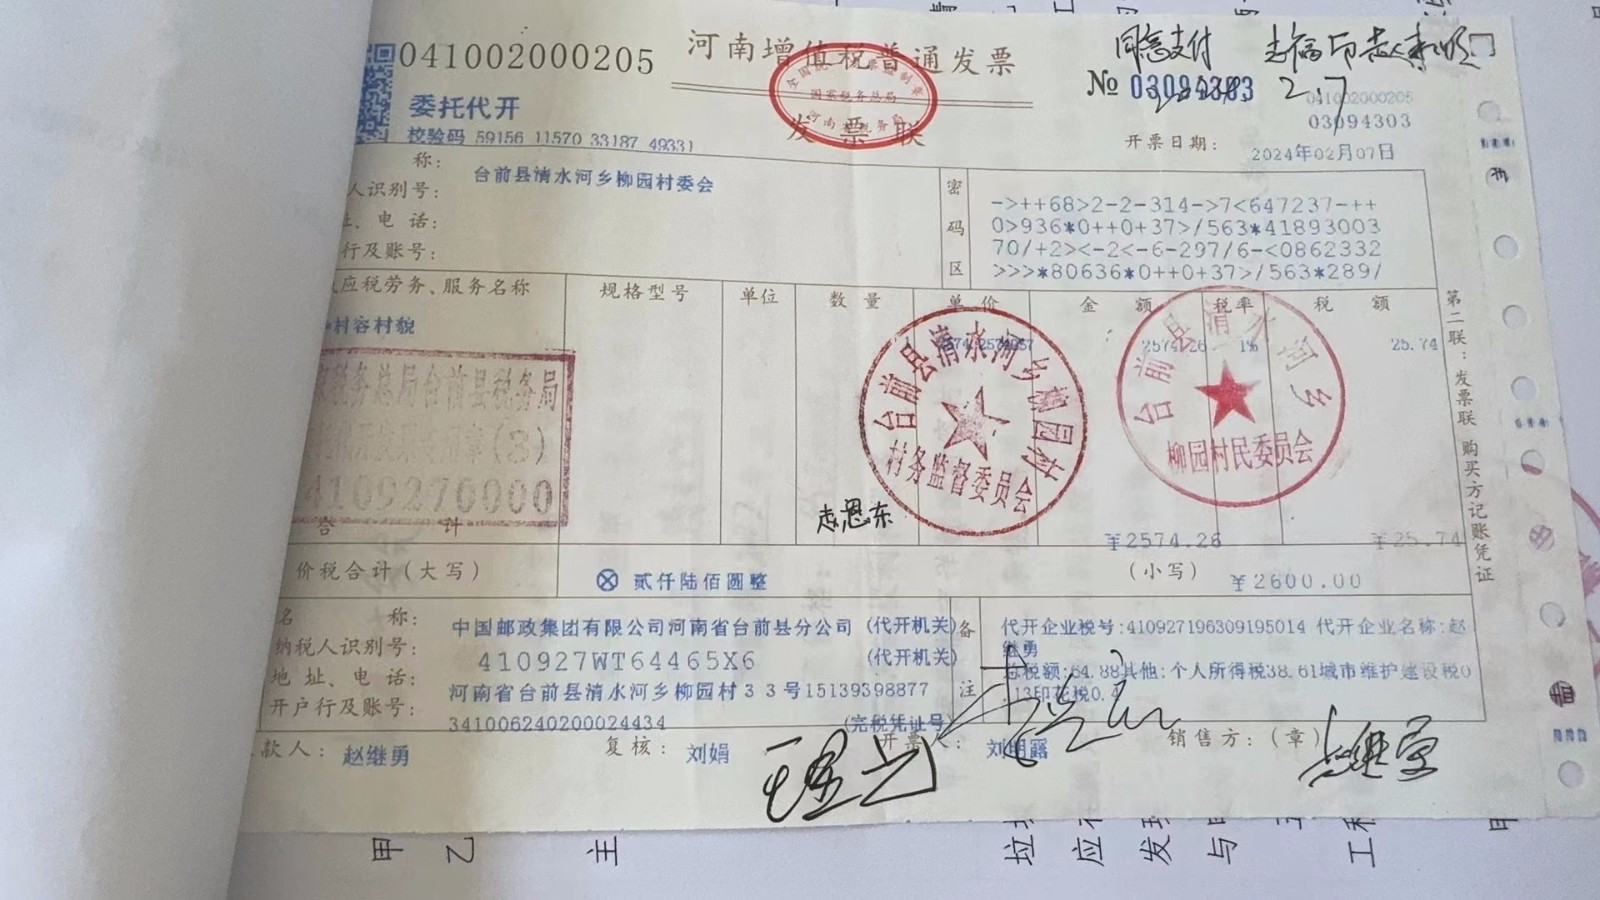 041002000205
河南增值税普通发票
同意支付
2.7
№ 03094303
委托代开
发票联
041002000205
03094303
校验码 59156 11570 33187 49331
开票日期：
2024年02月07日
称：
台前县清水河乡柳园村委会
人识别号：
址、电 话：
行及账号：
密码区
->++68>2-2-314->7<647237-++
0>936*0++0+37>/563*41893003
70/+2><-2<-6-297/6-<0862332
>>>*80636*0++0+37>/563*289/
应税劳务、服务名称
规格型号
单位
数 量
单 价
金 额
税率
税 额
*村容村貌
2574.26
1%
25.74
税务总局台前县税务局
(3)
4109270000
台前县清水河乡柳园村
村务监督委员会
台前县清水河乡
柳园村民委员会
赵恩东
合 计
￥2574.26
￥25.74
价税合计（大写）
贰仟陆佰圆整
（小写）
￥2600.00
名 称：
中国邮政集团有限公司河南省台前县分公司 (代开机关)
纳税人识别号：
410927WT64465X6
(代开机关)
地址、电 话：
河南省台前县清水河乡柳园村33号15139398877
开户行及账号：
341006240200024434
(完税凭证号)
备注
代开企业税号:410927196309195014 代开企业名称:赵
继勇
总税额:64.88其他:个人所得税38.61城市维护建设税0
.13印花税0.
款人：
赵继勇
复核：
刘娟
开票人：
刘明露
销售方：（章）
第二联：发票联 购买方记账凭证
甲
乙
主